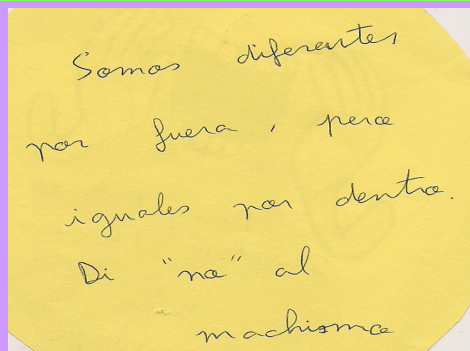 Somos diferentes
por fuera, pero
iguales por dentro.
Di "no" al
machismo